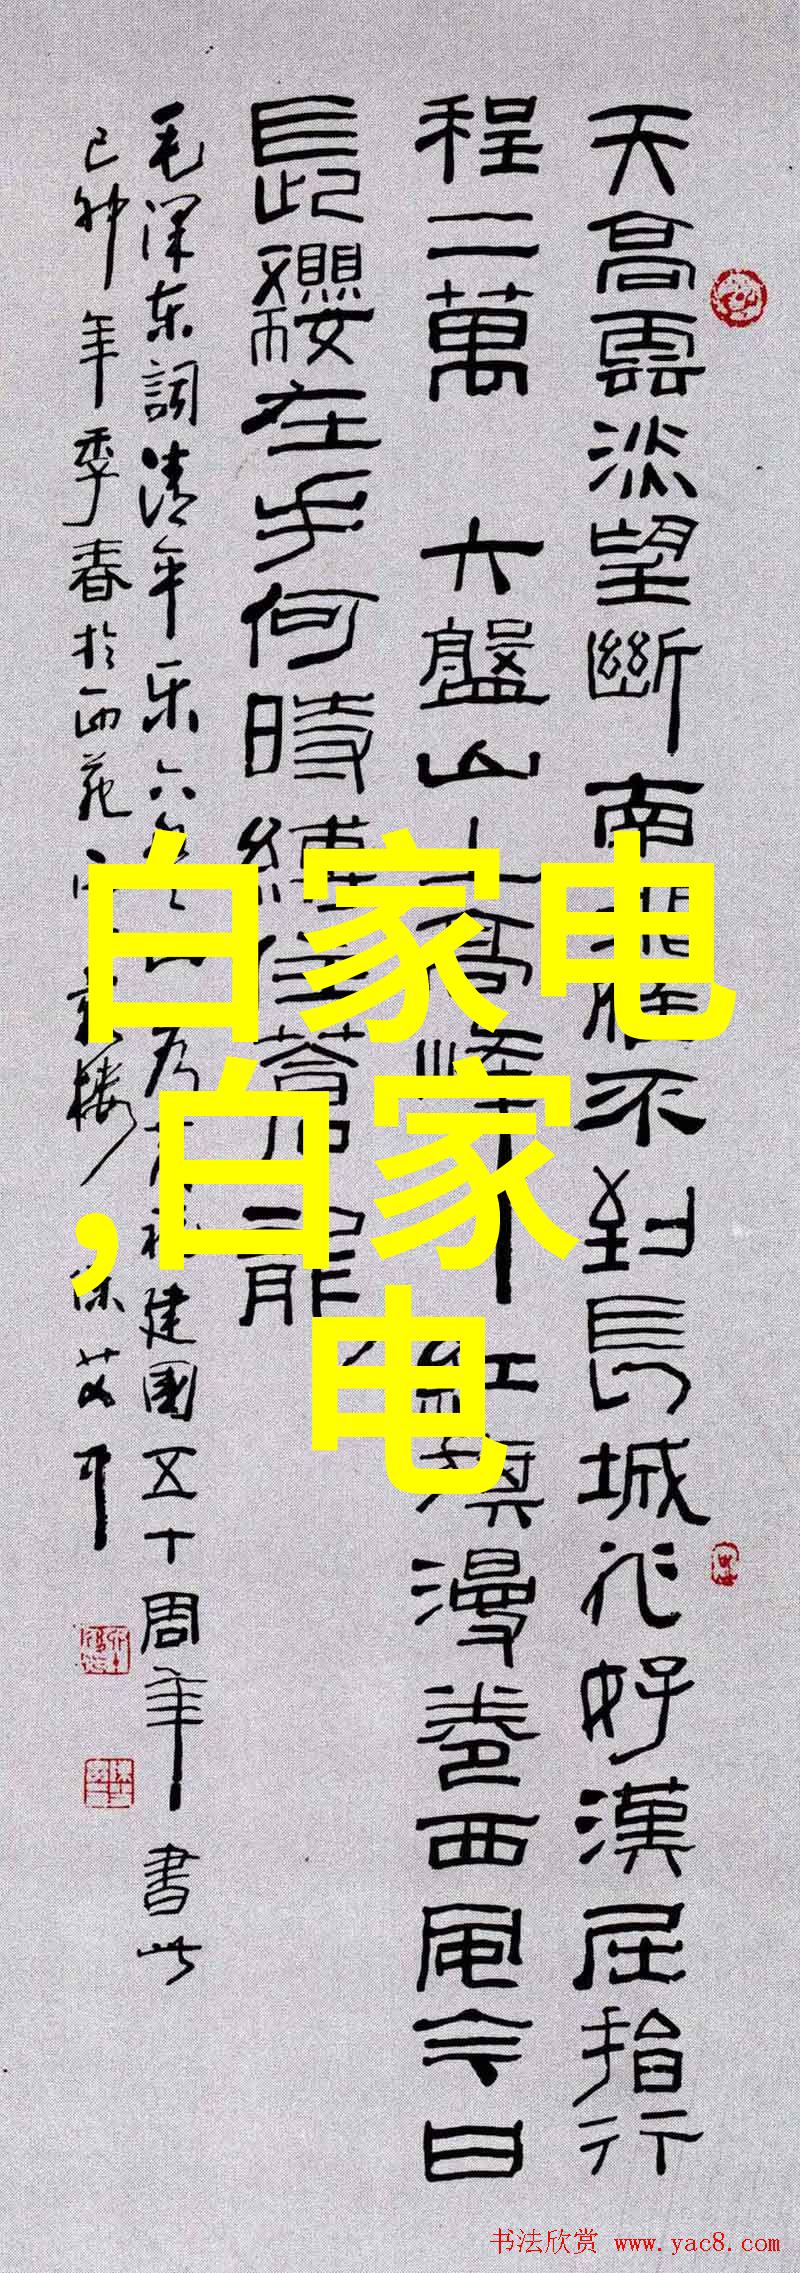 天高雲淡望斷南飛雁不到長城非好漢屈指行
程二萬 六盤山上高峰紅旗漫卷西風今日
長纓在手何時縛住蒼龍
毛泽东詞清平乐六盘山为庆祝建國五十周年書此
己卯年季春於西苑
白家电
,白家
电
书法欣赏 www.yac8.com